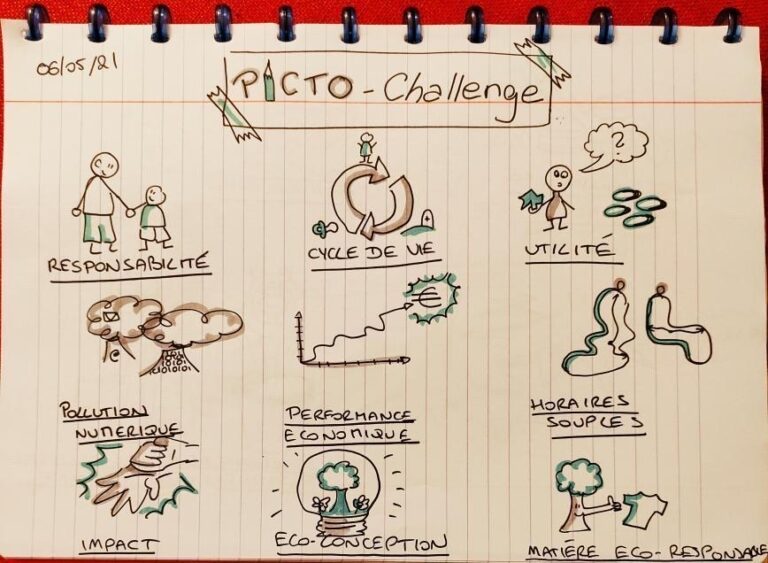 06/05/21
PICTO - Challenge
?
RESPONSABILITÉ
CYCLE DE VIE
UTILITÉ
€
POLLUTION
NUMERIQUE
PERFORMANCE
ECONOMIQUE
HORAIRES
SOUPLES
IMPACT
ECO-CONCEPTION
MATIÈRE ECO-RESPONSABLE